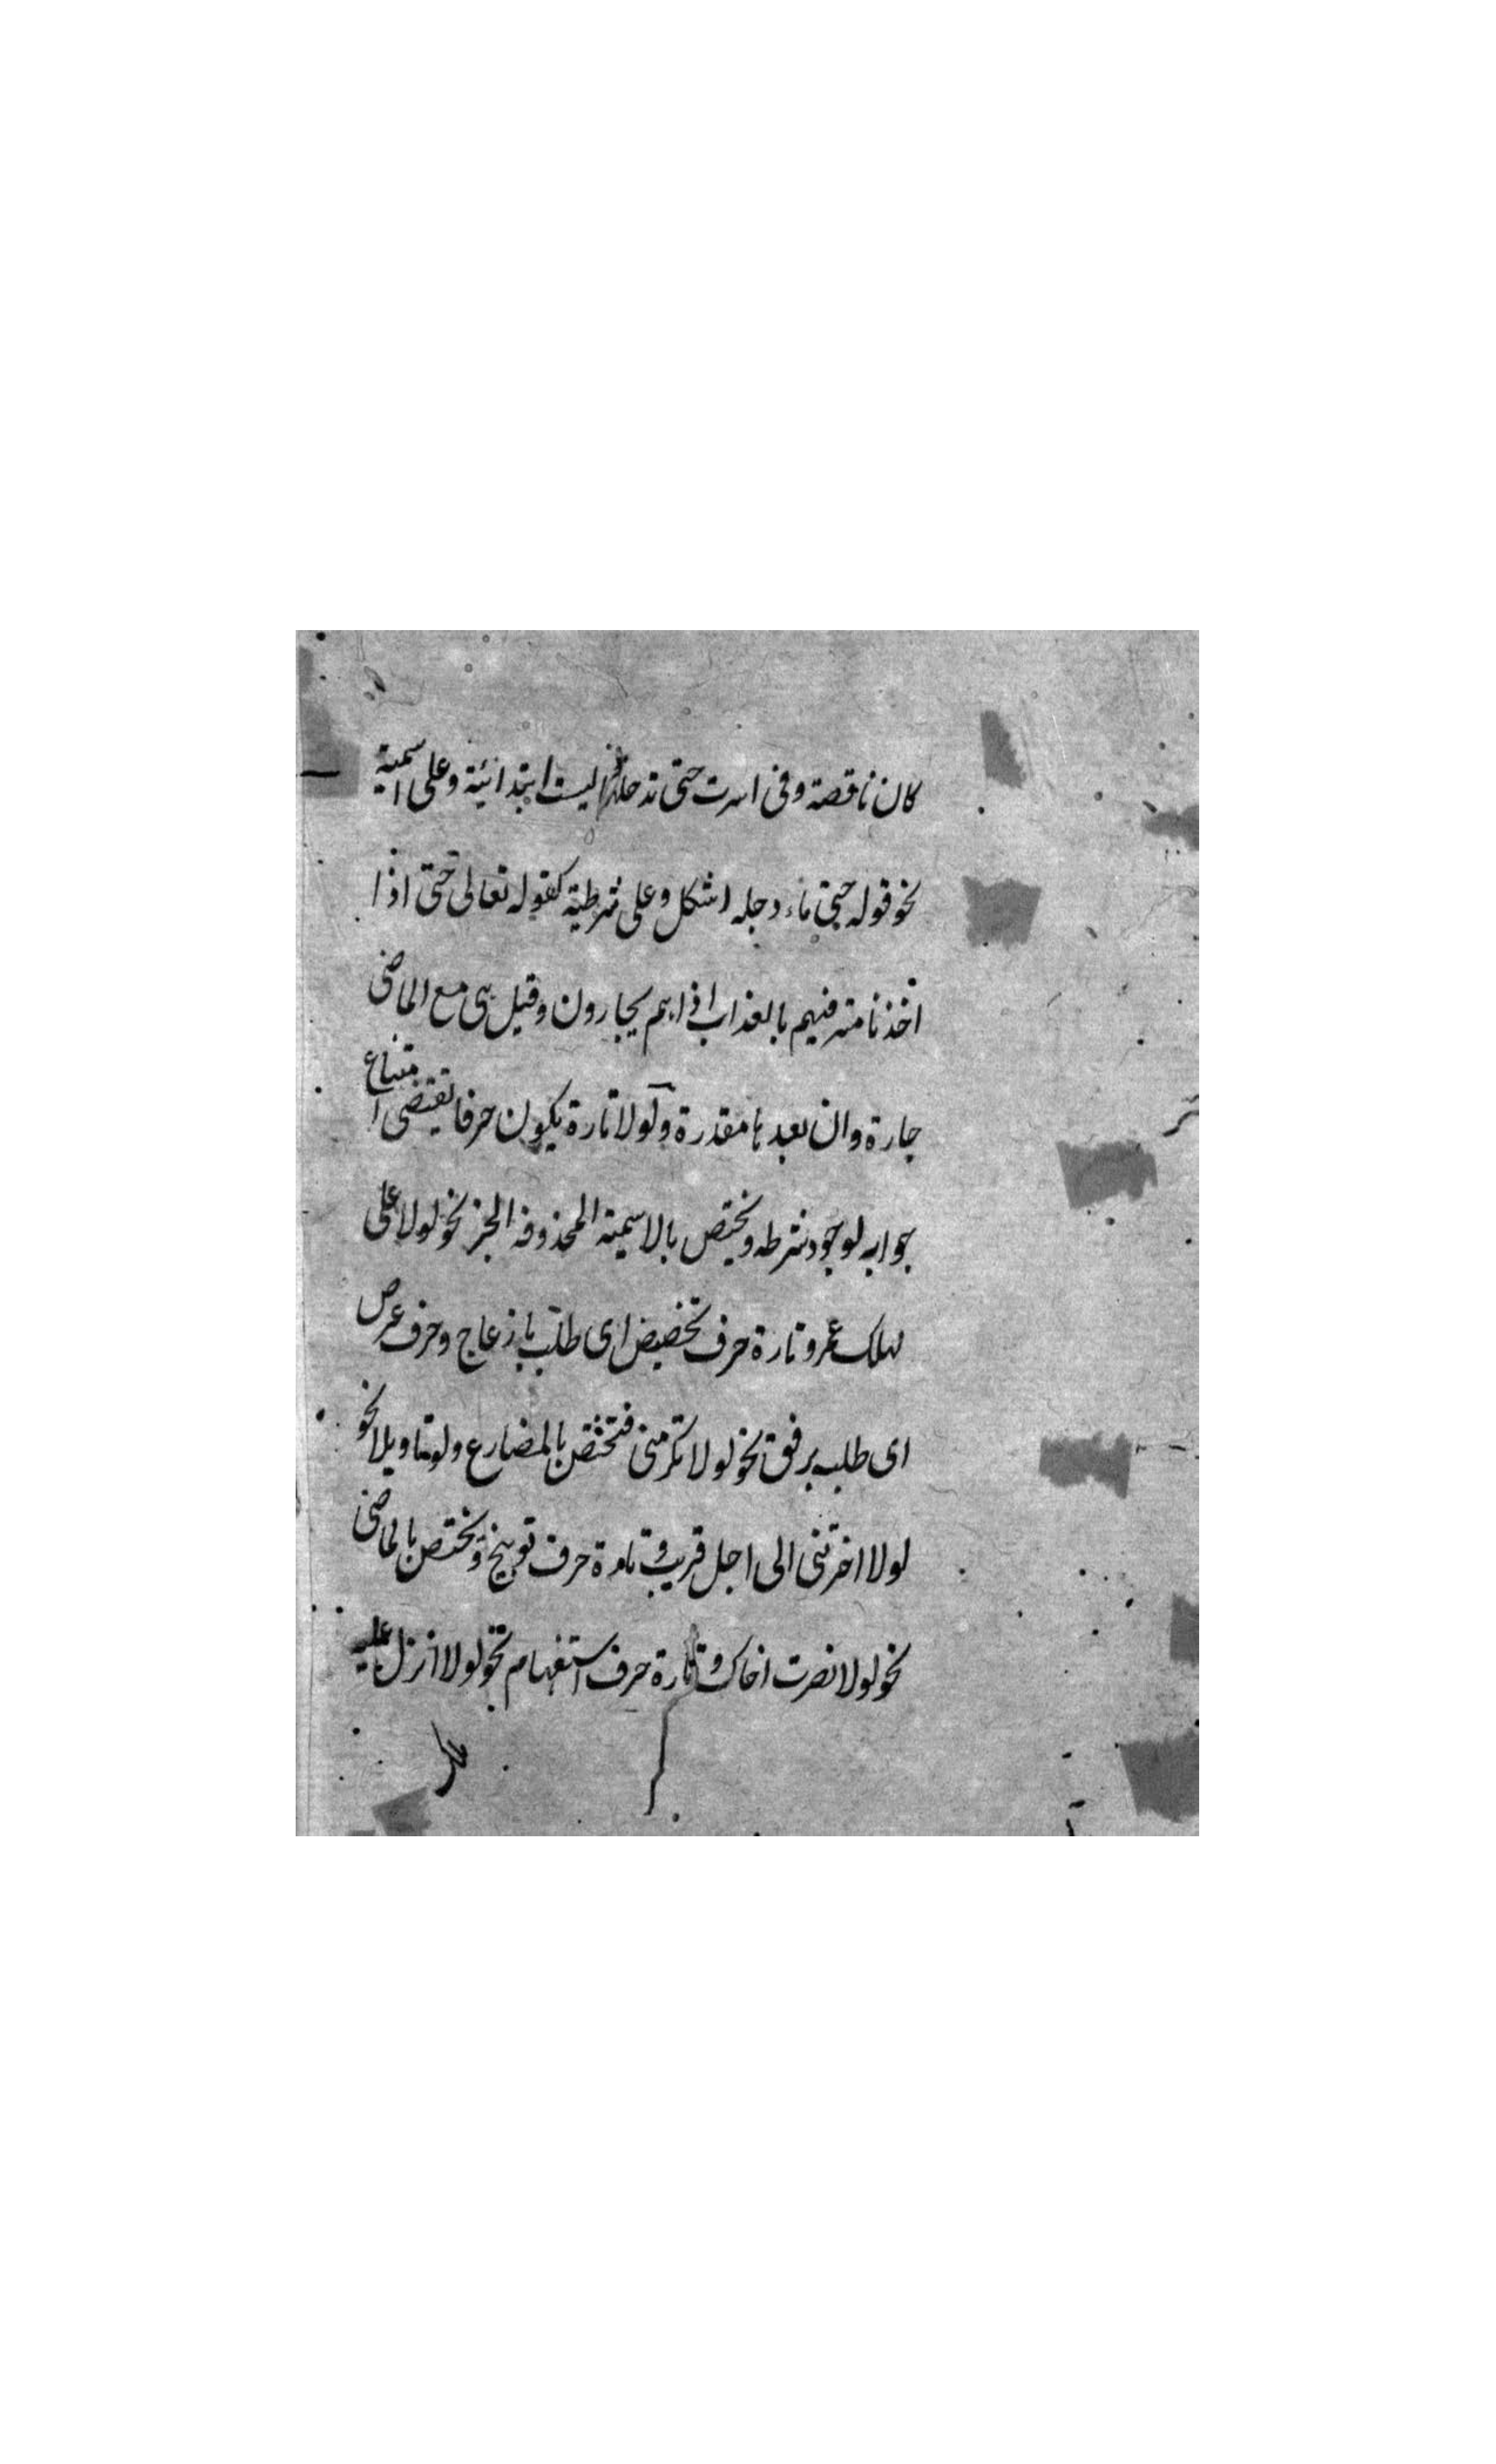 كان ناقصة وفى اسرت حتى تدخلها ليست ابتدائية وعلى اسمية
نحو قوله حتى ماء دجله اشكل وعلى شرطية كقوله تعالى حتى اذا
اخذنا مترفيهم بالعذاب اذا هم يجارون وقيل هى مع الماضى
جارة وان بعدها مقدرة ولولا تارة يكون حرفا تقتضى امتناع
جوابه لوجود شرطه ويختص بالاسمية المحذوفة الخبر نحو لولا على
لهلك عمر وتارة حرف تحضيض اى طلب بازعاج وحرف عرض
اى طلب برفق نحو لولا تكرمنى فتختص بالمضارع ولو تاويلا نحو
لولا اخرتنى الى اجل قريب وتارة حرف توبيخ وتختص بالماضى
نحو لولا نصرت اخاك وتارة حرف استفهام نحو لولا انزل عليه